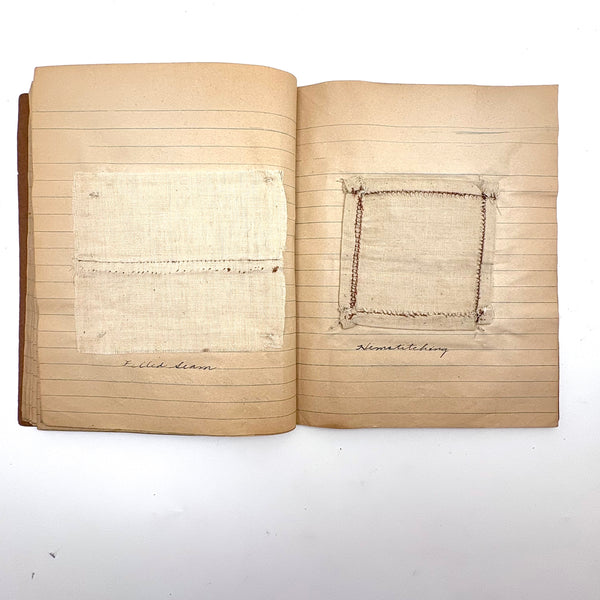 Felled Seam
Hemstitching